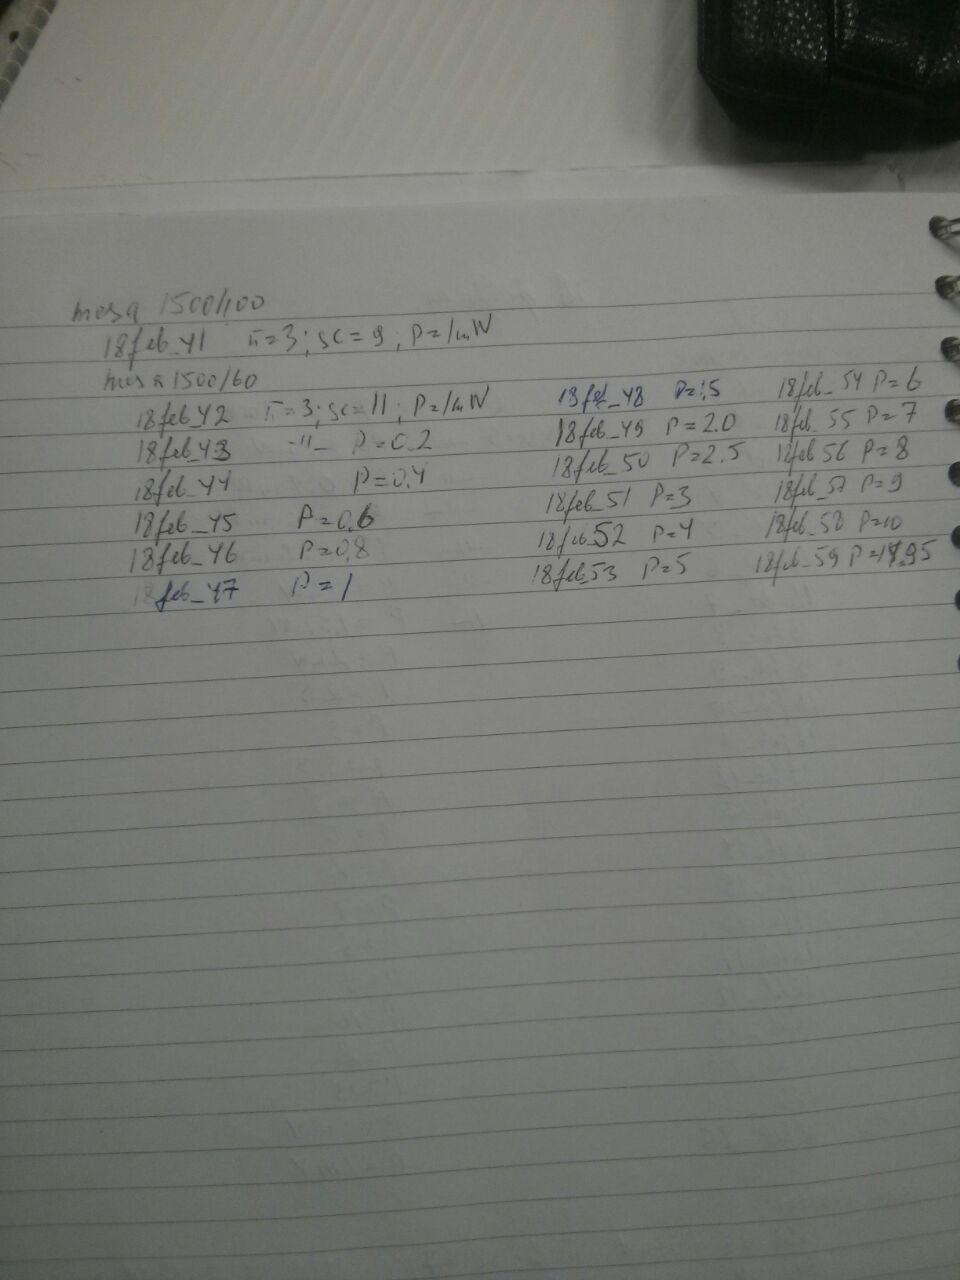 mesa 1500/100
18feb_41 π=3; sc=9; P=1mW
mesa 1500/60
18feb_42 π=3; sc=11; P=1mW
18feb_43 -"- P=0.2
18feb_44 P=0.4
18feb_45 P=0.6
18feb_46 P=0.8
18feb_47 P=1
18feb_48 P=1.5
18feb_49 P=2.0
18feb_50 P=2.5
18feb_51 P=3
18feb_52 P=4
18feb_53 P=5
18feb_54 P=6
18feb_55 P=7
18feb 56 P=8
18feb_57 P=9
18feb_58 P=10
18feb_59 P=